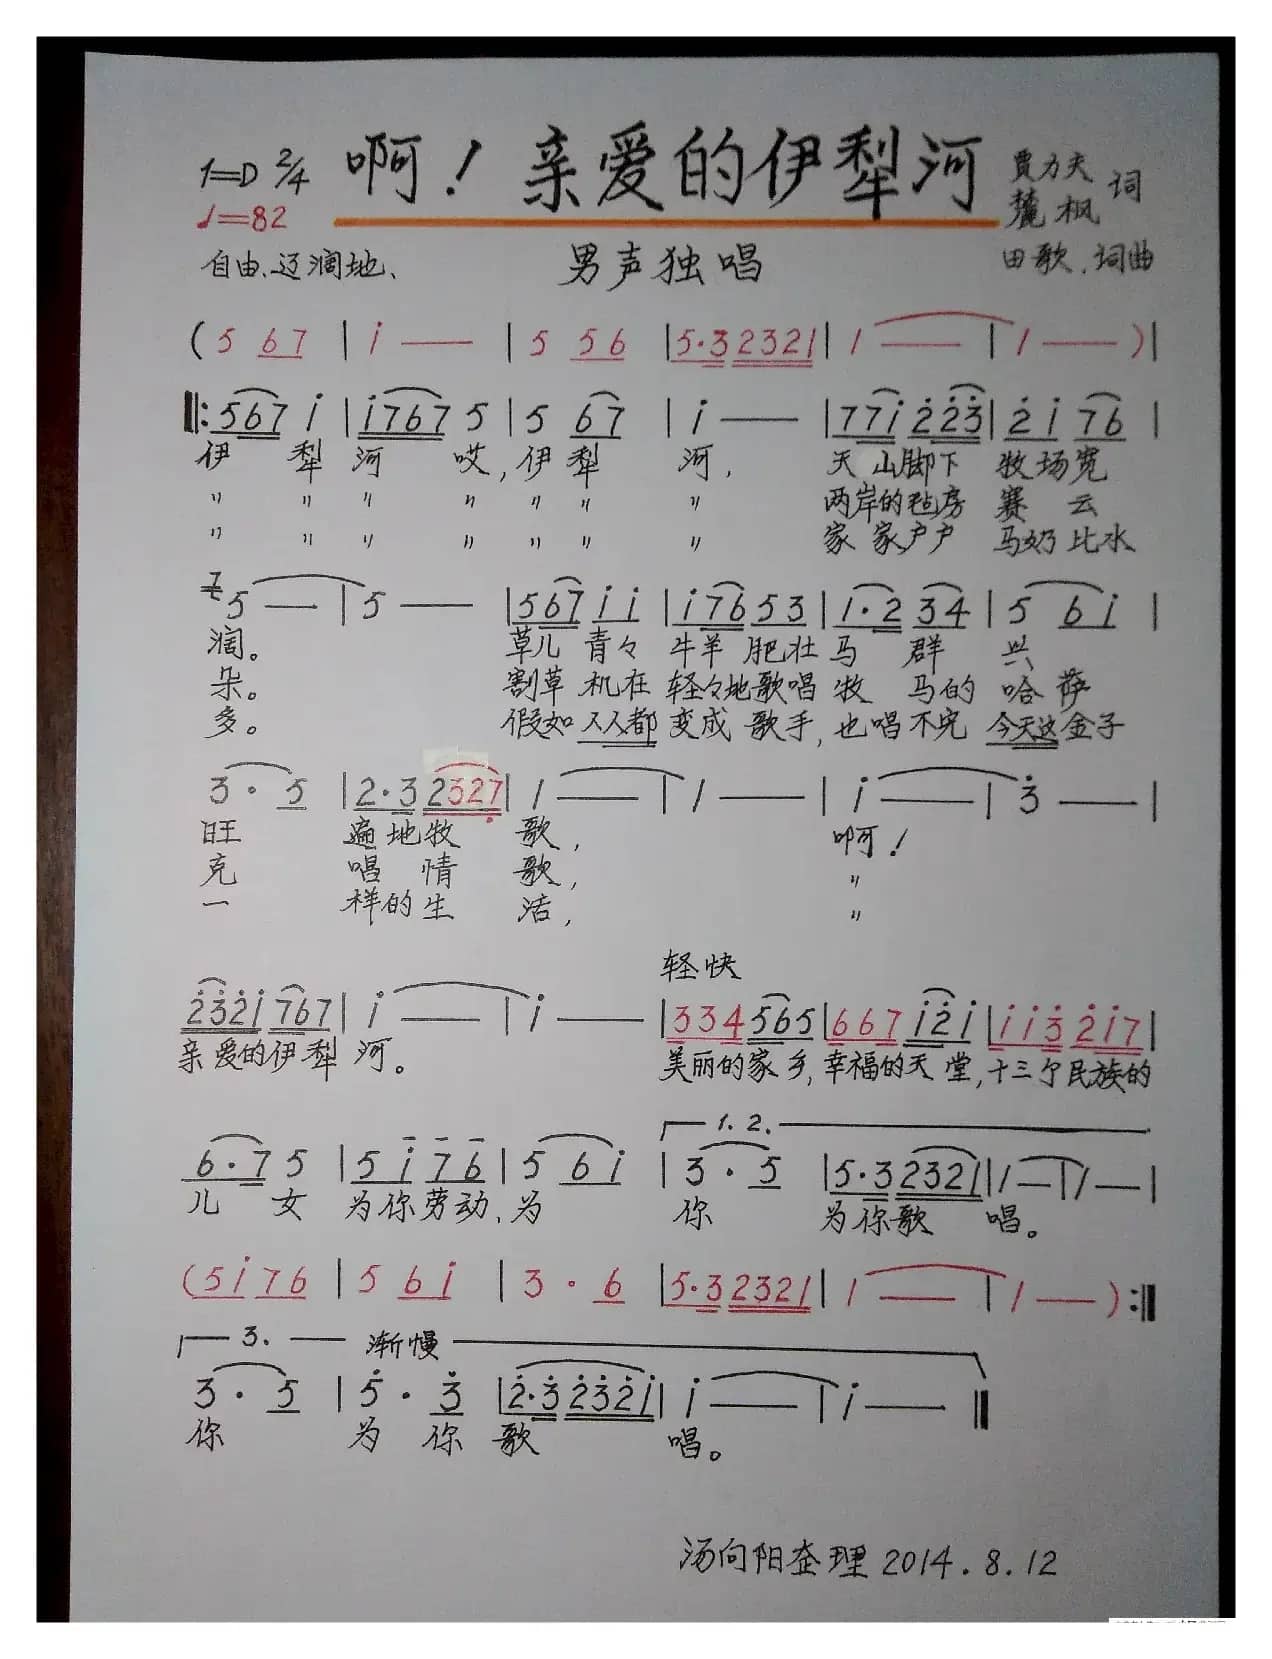 1=D 2/4 啊！亲爱的伊犁河 贾力夫 麓枫 词
♩=82
自由、辽阔地、 男声独唱 田歌、词曲
( 5 67 | i — | 5 56 | 5·3 2321 | 1 — | 1 — )|
‖: 567 i | i767 5 | 5 67 | i — | 77i 223 | 2i 76 |
伊 犁 河 哎, 伊 犁 河, 天 山脚下 牧场宽
〃 〃 〃 〃 〃 〃 〃 两岸的毡房 赛 云
〃 〃 〃 〃 〃 〃 〃 家 家户户 马奶比水
7 5 — | 5 — | 567 i i | i76 53 | 1·2 34 | 5 6i |
阔。 草儿 青々 牛羊 肥壮 马 群 兴
朵。 割草 机在 轻々地歌唱 牧 马的 哈 萨
多。 假如 人人都 变成 歌手, 也唱 不完 今天这金子
3·5 | 2·3 2327 | 1 — | 1 — | i — | 3 — |
旺 遍地牧 歌, 啊！
克 唱 情 歌, 〃
一 样的生 活, 〃
轻快
232i 767 | i — | i — | 334 565 | 667 i2i | ii3 2i7 |
亲爱的伊犁 河。 美丽的家乡, 幸福的天堂, 十三个民族的
1. 2.
6·7 5 | 5i 76 | 5 6i | 3·5 | 5·3 2321 | 1 — | 1 — |
儿 女 为你劳动、为 你 为你歌 唱。
(5i76 | 5 6i | 3·6 | 5·3 2321 | 1 — | 1 — ) :‖
3. 渐慢
3·5 | 5·3 | 2·3 232i | i — | i — ‖
你 为 你 歌 唱。
汤向阳整理 2014.8.12